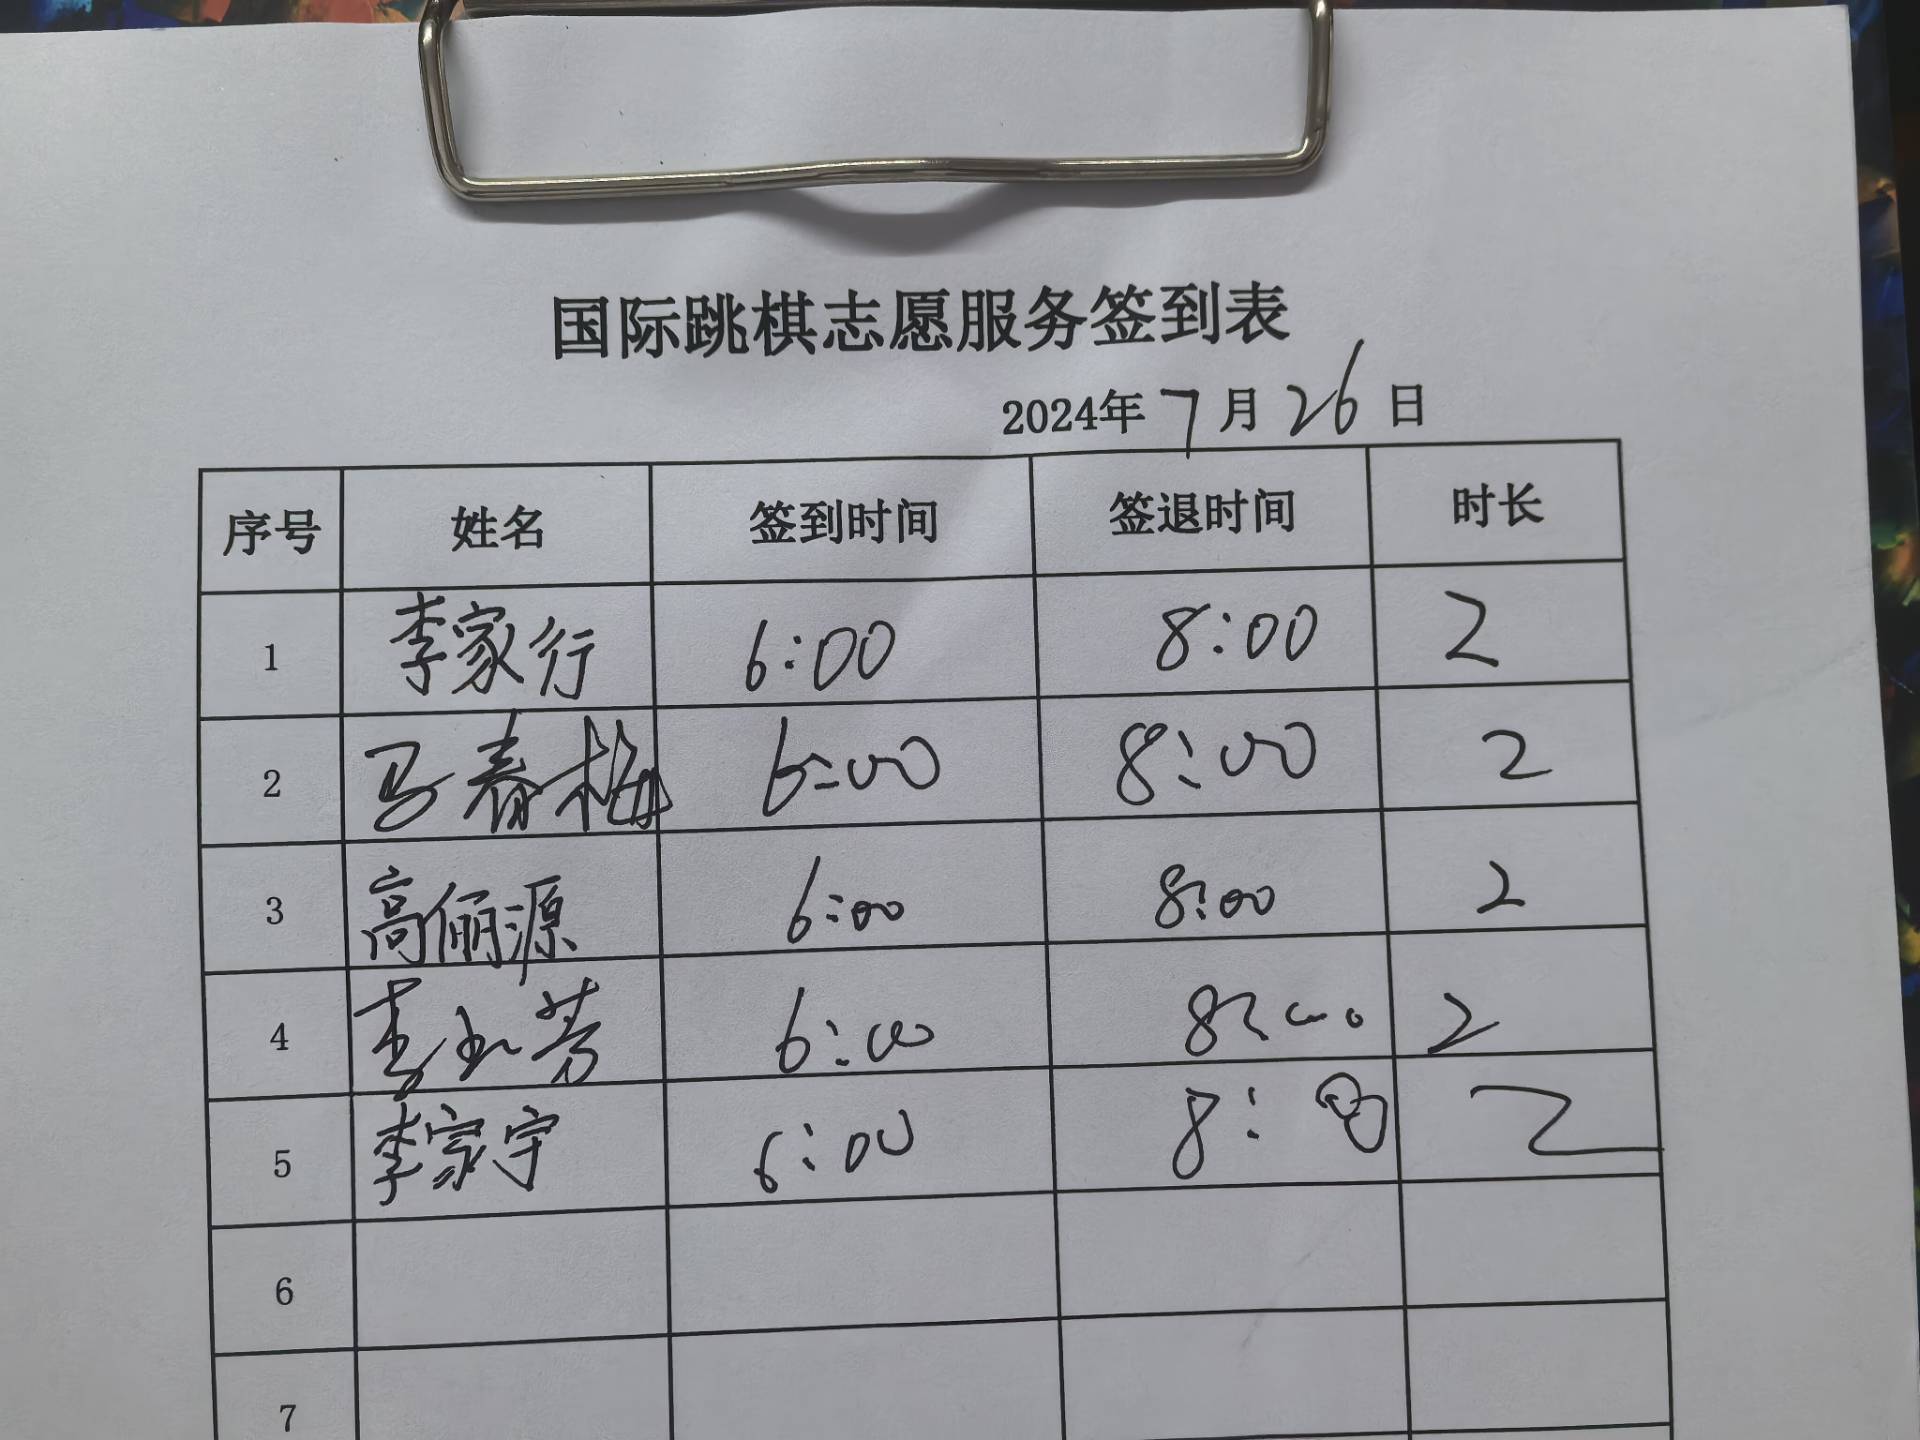 国际跳棋志愿服务签到表
2024年7月26日
序号 姓名 签到时间 签退时间 时长
1 李家行 6:00 8:00 2
2 马春梅 6:00 8:00 2
3 高俪源 6:00 8:00 2
4 6:00 8:00 2
5 李家宇 6:00 8:00 2
6
7